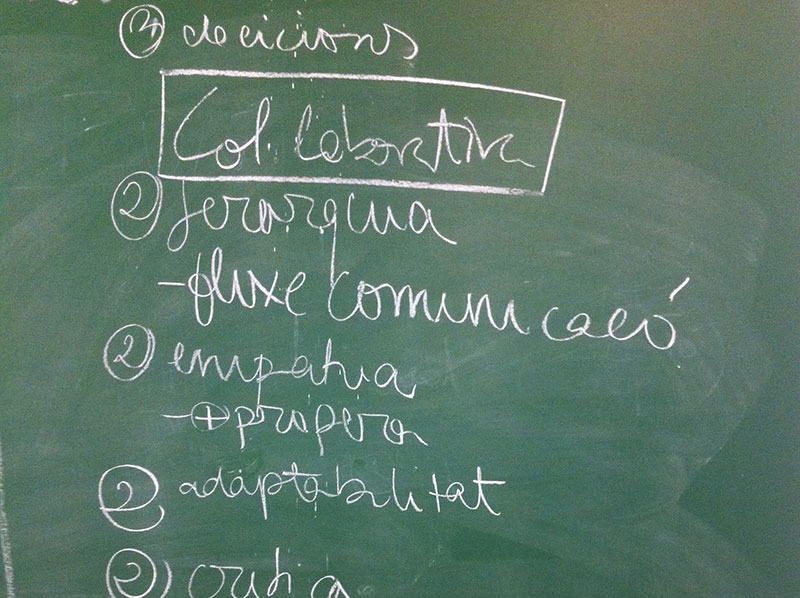 ③ decicions
Col·laborativa
② Jerarquia
- fluxe comunicació
② empatia
- ⊕ propera
② adaptabilitat
② crítica